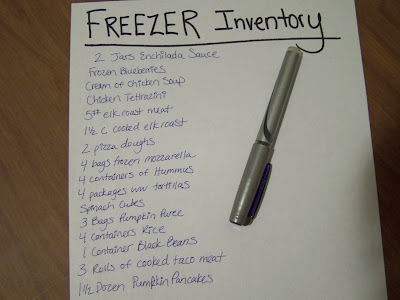 FREEZER Inventory
2 Jars Enchilada Sauce
Frozen Blueberries
Cream of Chicken Soup
Chicken Tettrazini
elk roast meat
1½ c cooked elk roast
2 pizza doughs
4 bags frozen mozzarella
4 containers of Hummus
4 packages ww tortillas
Spinach Cubes
3 Bags Pumpkin Puree
4 Containers Rice
1 Container Black Beans
3 Rolls of cooked taco meat
1½ Dozen Pumpkin Pancakes